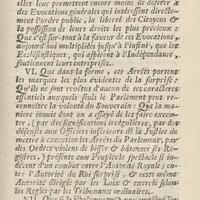 elles leur permettent encore moins de déférer à
des Evocations générales qui intéressent directe-
ment l'ordre public, la liberté des Citoyens &
la possession de leurs droits les plus précieux :
Que c'est sur-tout à la faveur de ces Evocations,
aujourd'hui multipliées jusqu'à l'infini, que les
Ecclésiastiques, qui aspirent à l'Indépendance,
soutiennent leurs entreprises.
VI. Que dans la forme, cet Arrêt porteroit
les marques les plus évidentes de la surprise :
Qu'ils ne sont revêtus d'aucun de ces caracteres
essentiels auxquels seuls le Parlement peut re-
connoître la volonté du Souverain : Que la ma-
niere inouie dont on a essayé de les faire execu-
ter, (par des significations irrégulieres, par des
défenses aux Officiers inférieurs de la Justice de
mettre à execution les Arrêts du Parlement, par
des Ordres violens de biffer & bâtonner ses Re-
gistres,) presente aux Peuples le spectacle si in-
décent d'un combat entre l'Autorité Royale, en-
tre l'Autorité du Roi surprise, & cette même
Autorité dirigée par les Loix & exercée selon
les Regles par les Tribunaux ordinaires.